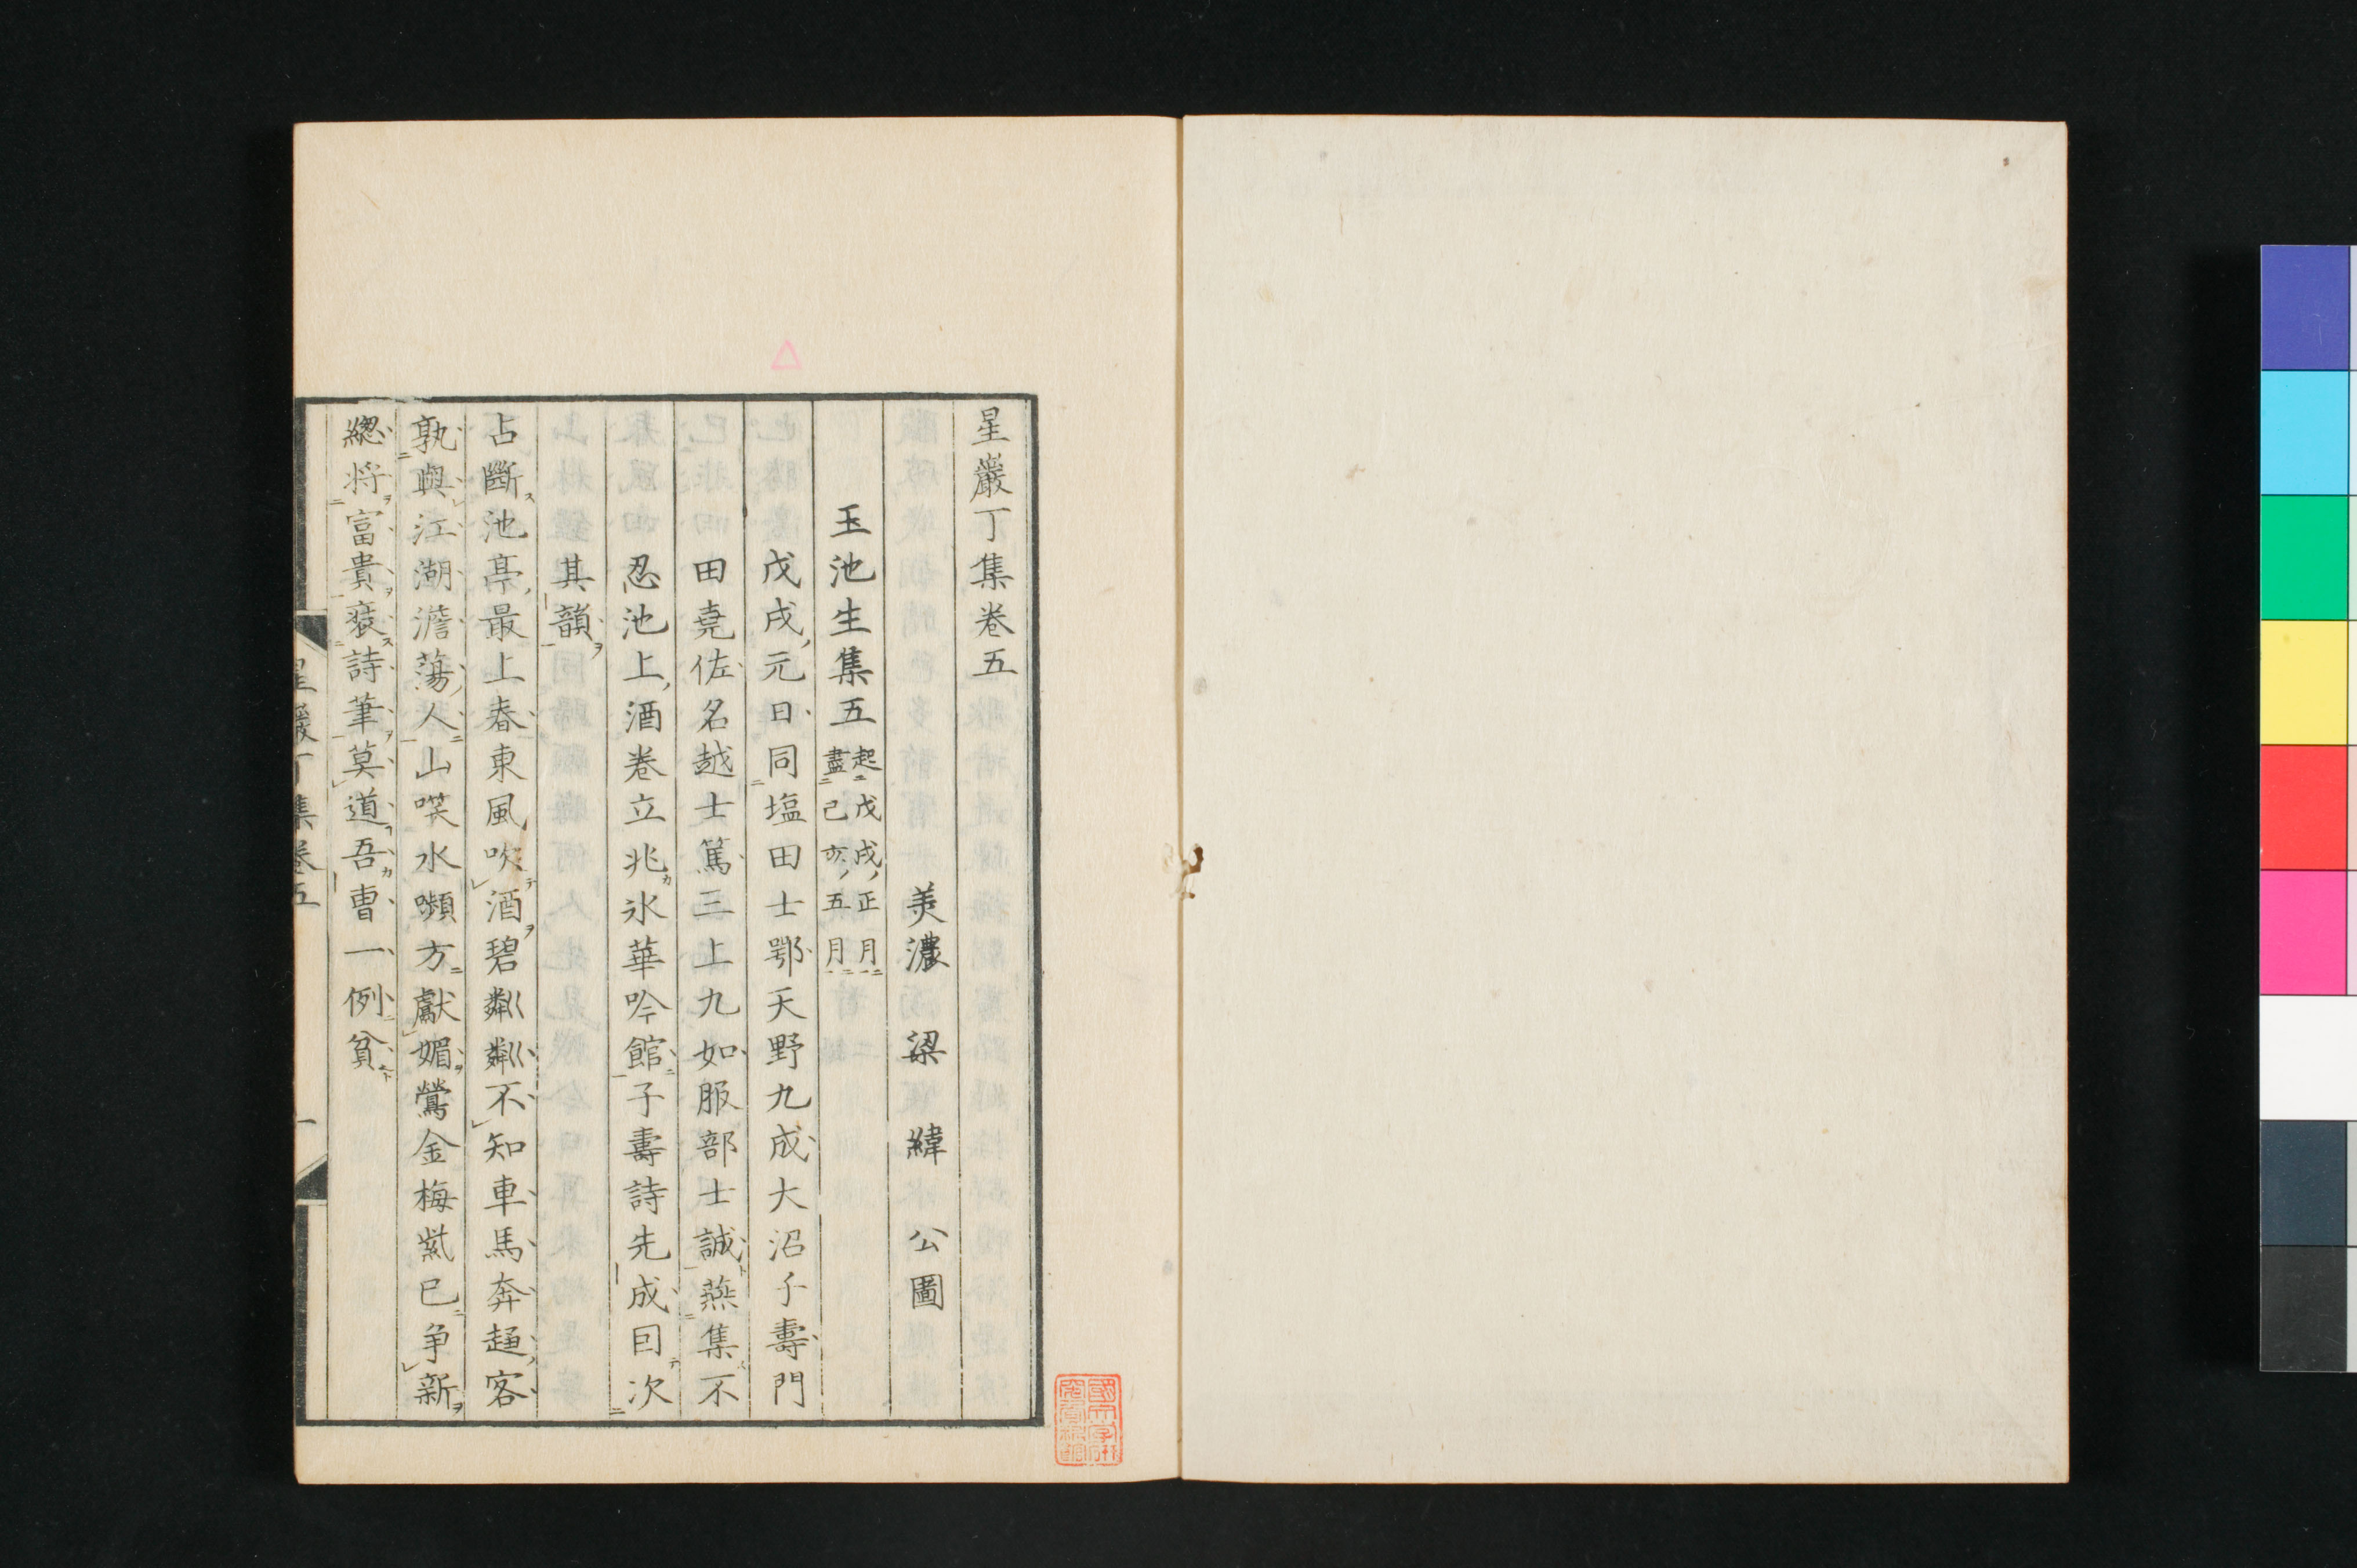 星巖丁集卷五
美濃 梁 緯 公圖
玉池生集五 起戊戌正月
盡己亥五月
戊戌元日同塩田士鄂天野九成大沼子壽門
田堯佐名越士篤三上九如服部士誠燕集不
忍池上酒卷立兆氷華吟館子壽詩先成囙次
其韻
占斷池亭最上春東風吹酒碧粼粼不知車馬奔趨客
孰與江湖澹蕩人山咲水嚬方獻媚鶯金梅紫已爭新
總將富貴裝詩筆莫道吾曹一例貧
星巖丁集卷五
一